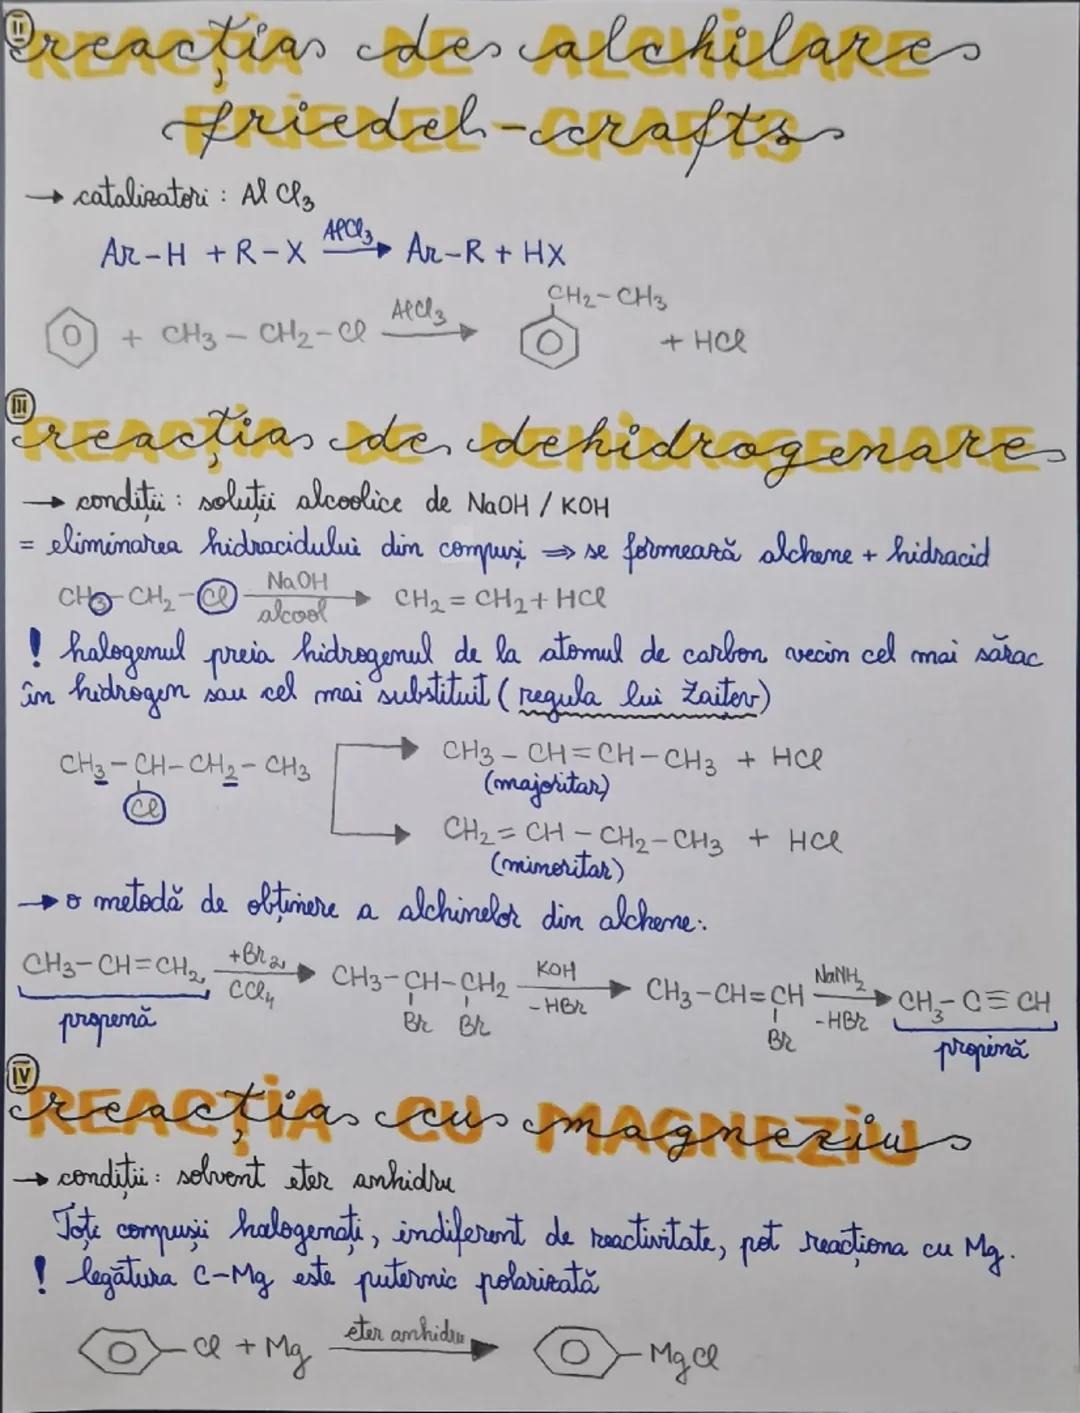 II
reacția de alchilare
REACȚIA DE ALCHILARE
friedel-crafts
FRIEDEL-CRAFTS
→ catalizatori : AlCl3
Ar-H + R-X AlCl3 → Ar-R + HX
CH2-CH3
+ CH3 - CH2-Cl AlCl3 → + HCl
III
reacția de dehidrogenare
REACȚIA DE DEHIDROGENARE
→ condiții : soluții alcoolice de NaOH / KOH
= eliminarea hidracidului din compuși ⇒ se formează alchene + hidracid
CH3-CH2-Cl NaOH alcool → CH2=CH2+HCl
! halogenul preia hidrogenul de la atomul de carbon vecin cel mai sărac
în hidrogen sau cel mai substituit (regula lui Zaitev)
CH3-CH-CH2-CH3 → CH3-CH=CH-CH3 + HCl
Cl (majoritar)
→ CH2=CH-CH2-CH3 + HCl
(minoritar)
→ o metodă de obținere a alchinelor din alchene:
CH3-CH=CH2 +Br2 CCl4 → CH3-CH-CH2 KOH -HBr → CH3-CH=CH NaNH2 -HBr → CH3-C≡CH
propenă Br Br Br propină
IV
reacția cu magneziu
REACȚIA CU MAGNEZIU
→ condiții : solvent eter anhidru
Toți compușii halogenați, indiferent de reactivitate, pot reacționa cu Mg.
! legătura C-Mg este puternic polarizată
-Cl + Mg eter anhidru → -MgCl